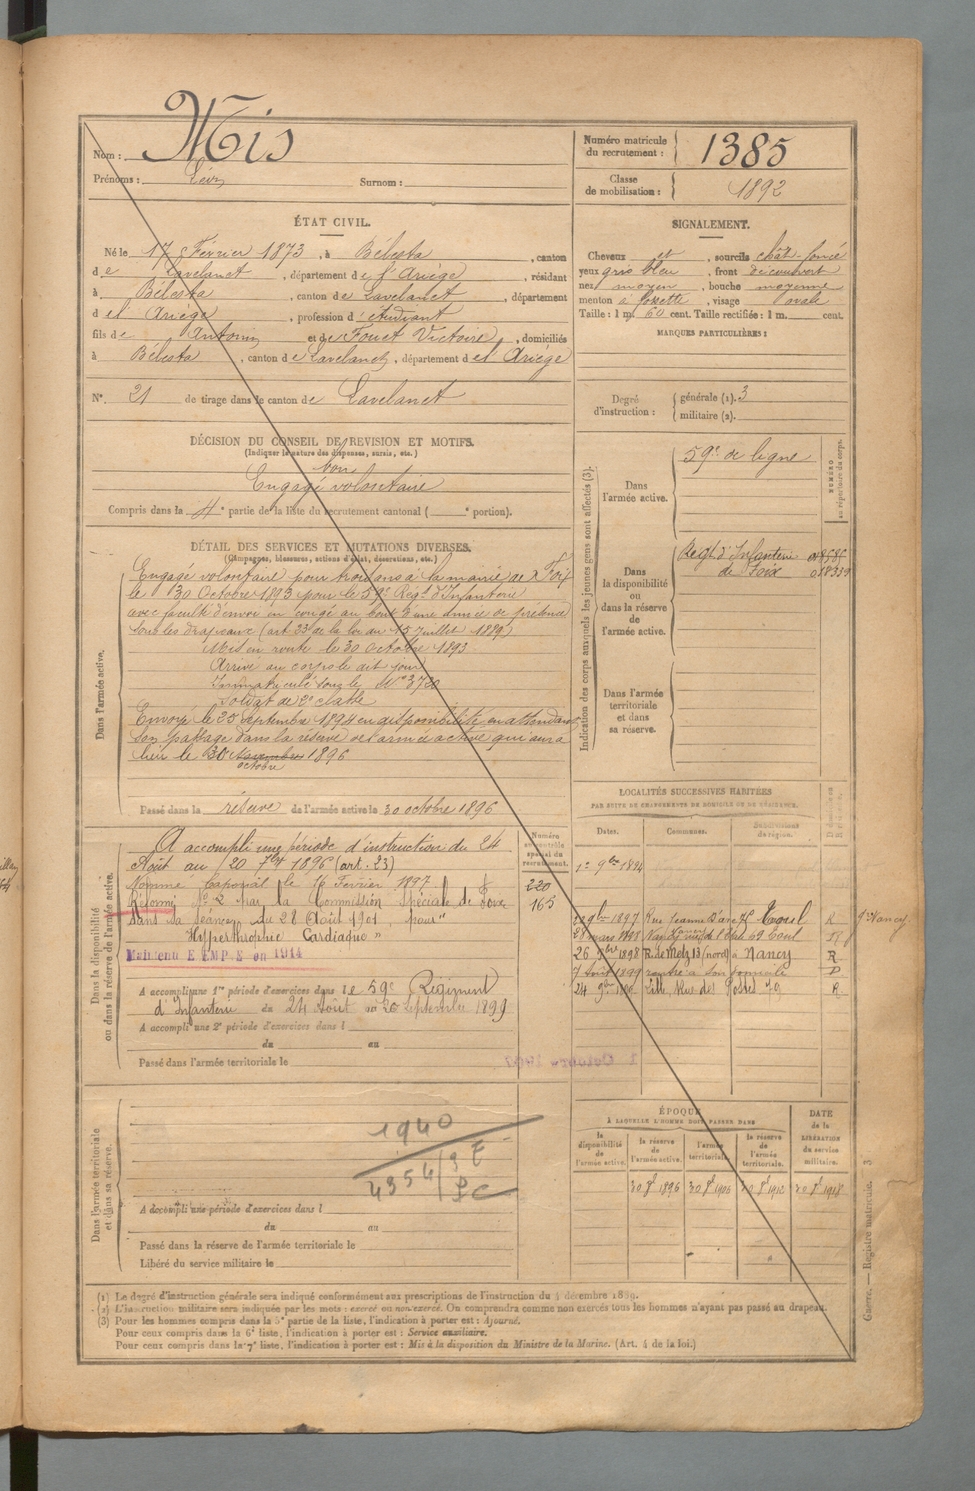 Nom : Mis
Prénoms : Léon Surnom :
Numéro matricule du recrutement : 1385
Classe de mobilisation : 1892
ÉTAT CIVIL.
Né le 17 Février 1873, à Bélesta, canton
de Lavelanet, département de l'Ariège, résidant
à Bélesta, canton de Lavelanet, département
d el Ariège, profession d'étudiant
fils de Antoine et de Fouet Victoire, domiciliés
à Bélesta, canton de Lavelanet, département d el Ariège
N° 21 de tirage dans le canton de Lavelanet
SIGNALEMENT.
Cheveux et, sourcils chât-foncé
yeux gris bleu, front découvert
nez moyen, bouche moyenne
menton à fossette, visage ovale
Taille : 1 m. 60 cent. Taille rectifiée : 1 m. cent.
MARQUES PARTICULIÈRES :
Degré d'instruction : générale (1). 3
militaire (2).
DÉCISION DU CONSEIL DE REVISION ET MOTIFS.
(Indiquer la nature des dispenses, sursis, etc.)
bon
Engagé volontaire
Compris dans la 4e partie de la liste du recrutement cantonal ( e portion).
DÉTAIL DES SERVICES ET MUTATIONS DIVERSES.
(Campagnes, blessures, actions d'éclat, décorations, etc.)
Dans l'armée active.
Engagé volontaire pour trois ans à la mairie de Foix
le 30 Octobre 1893 pour le 59e Régt d'Infanterie
avec faculté d'envoi en congé au bout d'une année de présence
sous les drapeaux (art 23 de la loi du 15 Juillet 1889)
Mis en route le 30 octobre 1893
Arrivé au corps le dit jour
Immatriculé sous le N° 3720
Soldat de 2e classe
Envoyé le 25 Septembre 1894 en disponibilité en attendant
son passage dans la réserve de l'armée active qui aura
lieu le 30 Novembre 1896
octobre
Passé dans la réserve de l'armée active le 30 octobre 1896
Indication des corps auxquels les jeunes gens sont affectés (3).
NUMÉRO au répertoire du corps.
Dans l'armée active.
59e de ligne
Dans la disponibilité ou dans la réserve de l'armée active.
Regt d'Infanterie
de Foix
Dans l'armée territoriale et dans sa réserve.
Dans la disponibilité ou dans la réserve de l'armée active.
Numéro au contrôle spécial du recrutement.
A accompli une période d'instruction du 24
Août au 20 7bre 1896 (art. 23)
Nommé Caporal le 16 Février 1897
220
Réformé N° 2 par la Commission spéciale de Foix
165
dans sa séance du 28 Août 1901 pour "
Hyperthrophie Cardiaque "
Maintenu E EMP E en 1914
A accompli une 1re période d'exercices dans le 59e Régiment
d'Infanterie du 24 Août au 20 Septembre 1899
A accompli une 2e période d'exercices dans l
du au
Passé dans l'armée territoriale le
1 Octobre 1907
LOCALITÉS SUCCESSIVES HABITÉES
PAR SUITE DE CHANGEMENTS DE DOMICILE OU DE RÉSIDENCE.
Dates. Communes. Subdivisions de région.
1er 9bre 1894
9bre 1897 Rue Jeanne d'arc Toul R
28 mars 1898 Nancy 69 Toul R
26 9bre 1898 R. de Metz 13 (nord) à Nancy R
7 Août 1899 rentré à son domicile D
24 Lille, Rue des Postes 79 R
Nancy
Dans l'armée territoriale et dans sa réserve.
1940
4354 | 9 E
P C
A accompli une période d'exercices dans l
du au
Passé dans la réserve de l'armée territoriale le
Libéré du service militaire le
ÉPOQUE
À LAQUELLE L'HOMME DOIT PASSER DANS
DATE de la LIBÉRATION du service militaire.
la disponibilité de l'armée active. la réserve de l'armée active. l'armée territoriale. la réserve de l'armée territoriale.
30 8e 1896 30 8e 1906 30 8e 1912 30 8e 1918
(1) Le degré d'instruction générale sera indiqué conformément aux prescriptions de l'instruction du 4 décembre 1889.
(2) L'instruction militaire sera indiquée par les mots : exercé ou non exercé. On comprendra comme non exercés tous les hommes n'ayant pas passé au drapeau.
(3) Pour les hommes compris dans la 5e partie de la liste, l'indication à porter est : Ajourné.
Pour ceux compris dans la 6e liste, l'indication à porter est : Service auxiliaire.
Pour ceux compris dans la 7e liste, l'indication à porter est : Mis à la disposition du Ministre de la Marine. (Art. 4 de la loi.)
Guerre. — Registre matricule. 3